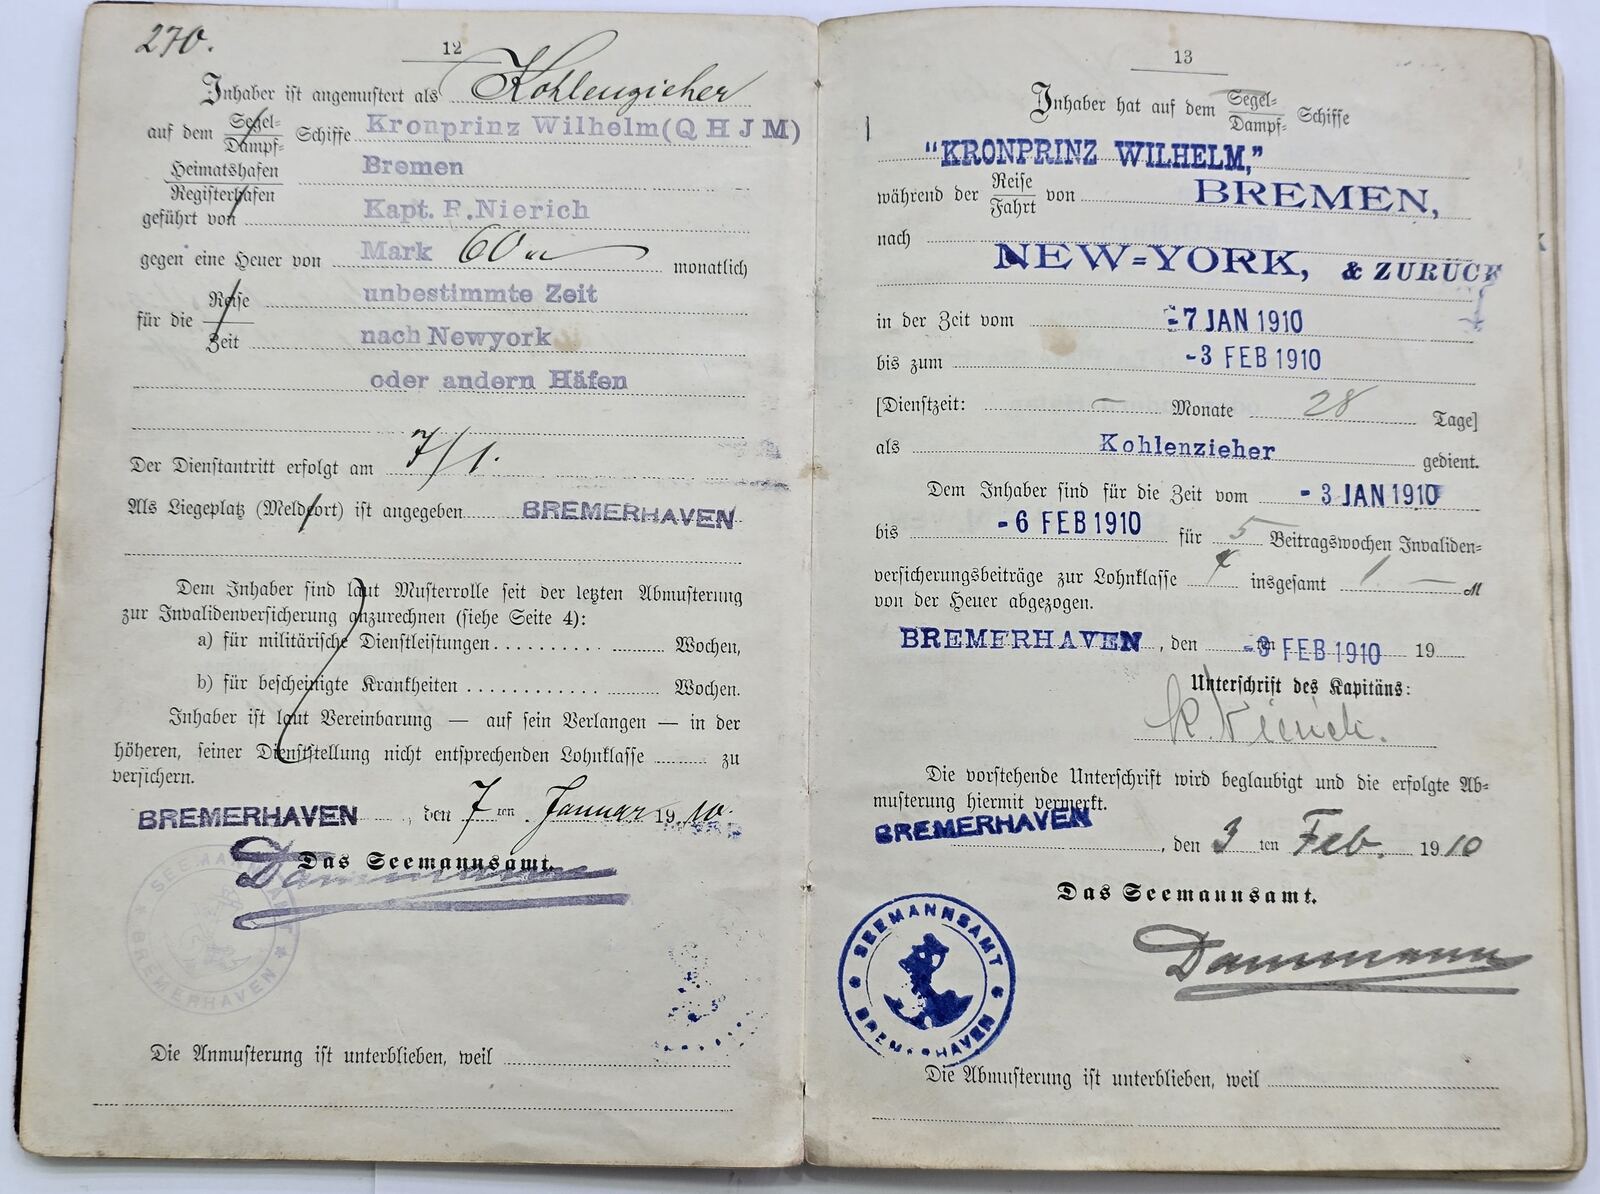 270.
12
Inhaber ist angemustert als Kohlenzieher
auf dem Segel-
Dampf- Schiffe Kronprinz Wilhelm (Q H J M)
Heimatshafen
Registerhafen Bremen
geführt von Kapt. F. Nierich
gegen eine Heuer von Mark 60 monatlich
für die Reise
Zeit unbestimmte Zeit
nach Newyork
oder andern Häfen
Der Dienstantritt erfolgt am 7/1.
Als Liegeplatz (Meldeort) ist angegeben BREMERHAVEN
Dem Inhaber sind laut Musterrolle seit der letzten Abmusterung
zur Invalidenversicherung anzurechnen (siehe Seite 4):
a) für militärische Dienstleistungen .......... Wochen,
b) für bescheinigte Krankheiten .......... Wochen.
Inhaber ist laut Vereinbarung — auf sein Verlangen — in der
höheren, seiner Dienststellung nicht entsprechenden Lohnklasse ........ zu
versichern.
BREMERHAVEN, den 7ten Januar 1910.
Das Seemannsamt.
Dammann
SEEMANNSAMT BREMERHAVEN
Die Anmusterung ist unterblieben, weil
13
Inhaber hat auf dem Segel-
Dampf- Schiffe
"KRONPRINZ WILHELM,"
während der Reise
Fahrt von BREMEN,
nach NEW=YORK, & ZURÜCK
in der Zeit vom -7 JAN 1910
bis zum -3 FEB 1910
[Dienstzeit: — Monate 28 Tage]
als Kohlenzieher gedient.
Dem Inhaber sind für die Zeit vom -3 JAN 1910
bis -6 FEB 1910 für 5 Beitragswochen Invaliden-
versicherungsbeiträge zur Lohnklasse 4 insgesamt 1 — M
von der Heuer abgezogen.
BREMERHAVEN, den -3ten FEB 1910 19
Unterschrift des Kapitäns:
Nierich.
Die vorstehende Unterschrift wird beglaubigt und die erfolgte Ab-
musterung hiermit vermerkt.
BREMERHAVEN, den 3ten Feb. 1910
Das Seemannsamt.
Dammann
SEEMANNSAMT BREMERHAVEN
Die Abmusterung ist unterblieben, weil